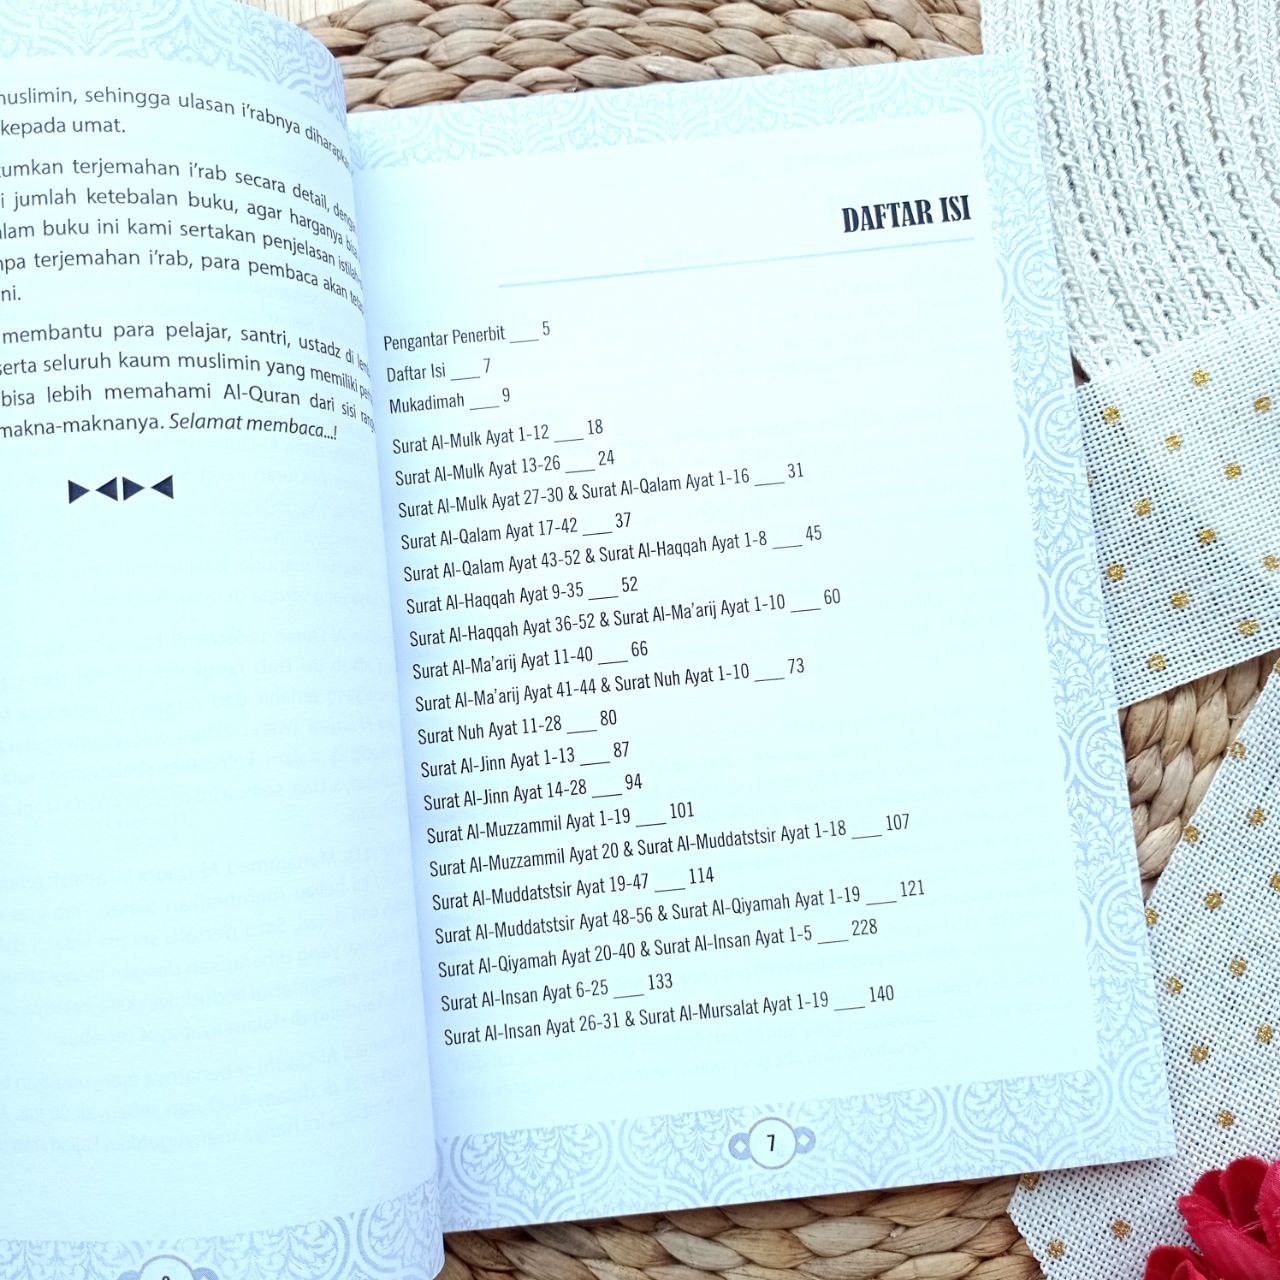 muslimin, sehingga ulasan i'rabnya diharapkan
kepada umat.
terjemahan i'rab secara detail,
jumlah ketebalan buku, agar harganya bisa
buku ini kami sertakan penjelasan
terjemahan i'rab, para pembaca akan
ni.
membantu para pelajar, santri, ustadz di
serta seluruh kaum muslimin yang memiliki
bisa lebih memahami Al-Quran dari sisi
makna-maknanya. Selamat membaca...!
DAFTAR ISI
Pengantar Penerbit ___ 5
Daftar Isi ___ 7
Mukadimah ___ 9
Surat Al-Mulk Ayat 1-12 ___ 18
Surat Al-Mulk Ayat 13-26 ___ 24
Surat Al-Mulk Ayat 27-30 & Surat Al-Qalam Ayat 1-16 ___ 31
Surat Al-Qalam Ayat 17-42 ___ 37
Surat Al-Qalam Ayat 43-52 & Surat Al-Haqqah Ayat 1-8 ___ 45
Surat Al-Haqqah Ayat 9-35 ___ 52
Surat Al-Haqqah Ayat 36-52 & Surat Al-Ma'arij Ayat 1-10 ___ 60
Surat Al-Ma'arij Ayat 11-40 ___ 66
Surat Al-Ma'arij Ayat 41-44 & Surat Nuh Ayat 1-10 ___ 73
Surat Nuh Ayat 11-28 ___ 80
Surat Al-Jinn Ayat 1-13 ___ 87
Surat Al-Jinn Ayat 14-28 ___ 94
Surat Al-Muzzammil Ayat 1-19 ___ 101
Surat Al-Muzzammil Ayat 20 & Surat Al-Muddatstsir Ayat 1-18 ___ 107
Surat Al-Muddatstsir Ayat 19-47 ___ 114
Surat Al-Muddatstsir Ayat 48-56 & Surat Al-Qiyamah Ayat 1-19 ___ 121
Surat Al-Qiyamah Ayat 20-40 & Surat Al-Insan Ayat 1-5 ___ 228
Surat Al-Insan Ayat 6-25 ___ 133
Surat Al-Insan Ayat 26-31 & Surat Al-Mursalat Ayat 1-19 ___ 140
7